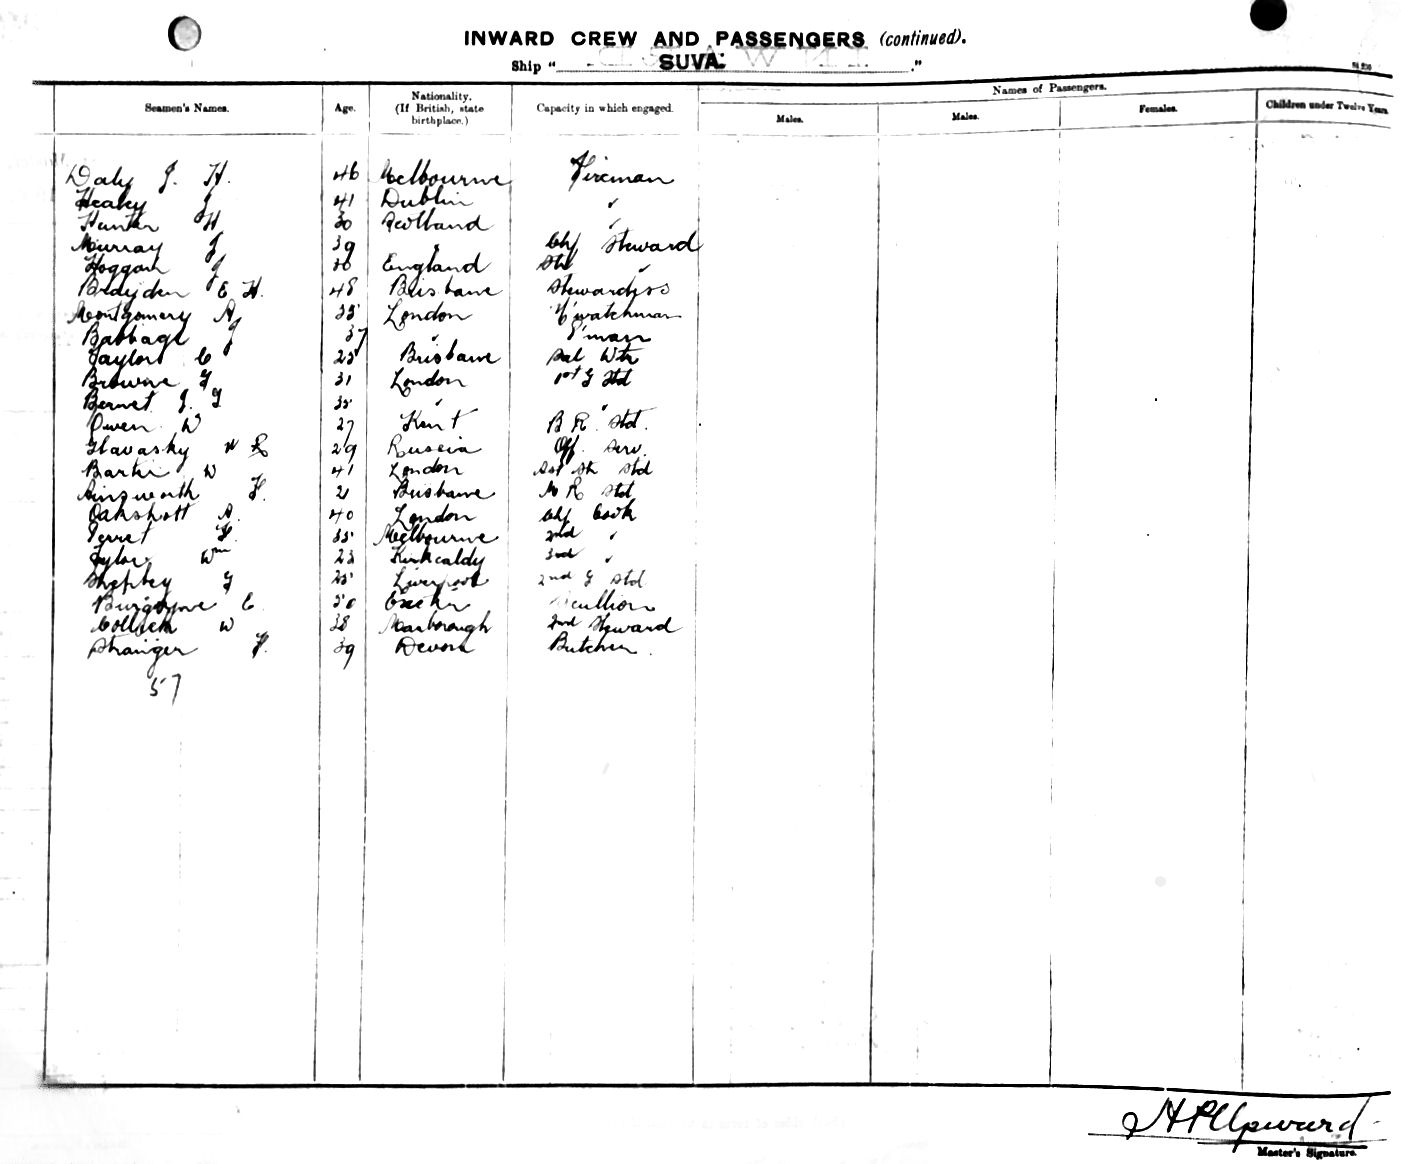 INWARD CREW AND PASSENGERS (continued).
Ship " SUVA. ."
Seamen's Names. Age. Nationality. (If British, state birthplace.) Capacity in which engaged. Names of Passengers.
Males. Males. Females. Children under Twelve Years.
Daly J. H. 46 Melbourne Fireman
Healey J 41 Dublin "
Hunter H 30 Scotland "
Murray J 39 " Chf Steward
Hoggan J 36 England Std "
Brayden E H. 48 Brisbane Stewardess
Montgomery A 35 London N'watchman
Babbage J 37 " P'man
Taylor C 25 Brisbane Sal Wtr
Browne G 31 London 1st G Std
Bernet J. G 35 " "
Owen W 27 Kent B R. Std.
Glavasky W R 29 Russia Off. Serv.
Barter W 41 London Std
Ainsworth F. 21 Brisbane M R Std
Oakshott A. 40 London Chf Cook
Perret F. 35 Melbourne 2nd "
Tyler Wm 23 Kirkcaldy 3rd "
Shepley G 25 Liverpool 2nd G Std
Burgoyne C. 50 Exeter Scullion
Collick W 38 Marborough 2nd Steward
Stranger F. 39 Devon Butcher.
57
H P Upward
Master's Signature.